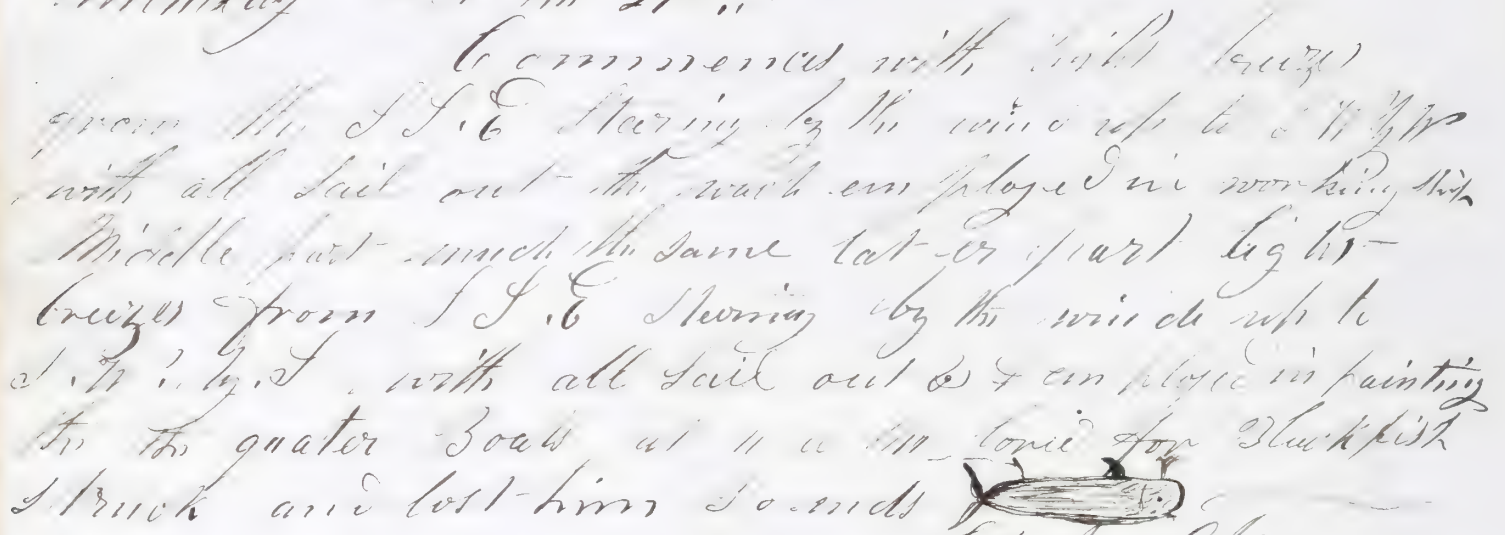 Commences with light breezes
from the S S.E Steering by the wind up to S W by W
with all Sail out the watch employed in working Ship
Middle part much the same lat er part light
breezes from S S.E Steering by the wind up to
with all Sail out employed in painting
the quater Boats at 11 a m Lored for Blackfish
Struck and lost him So ends